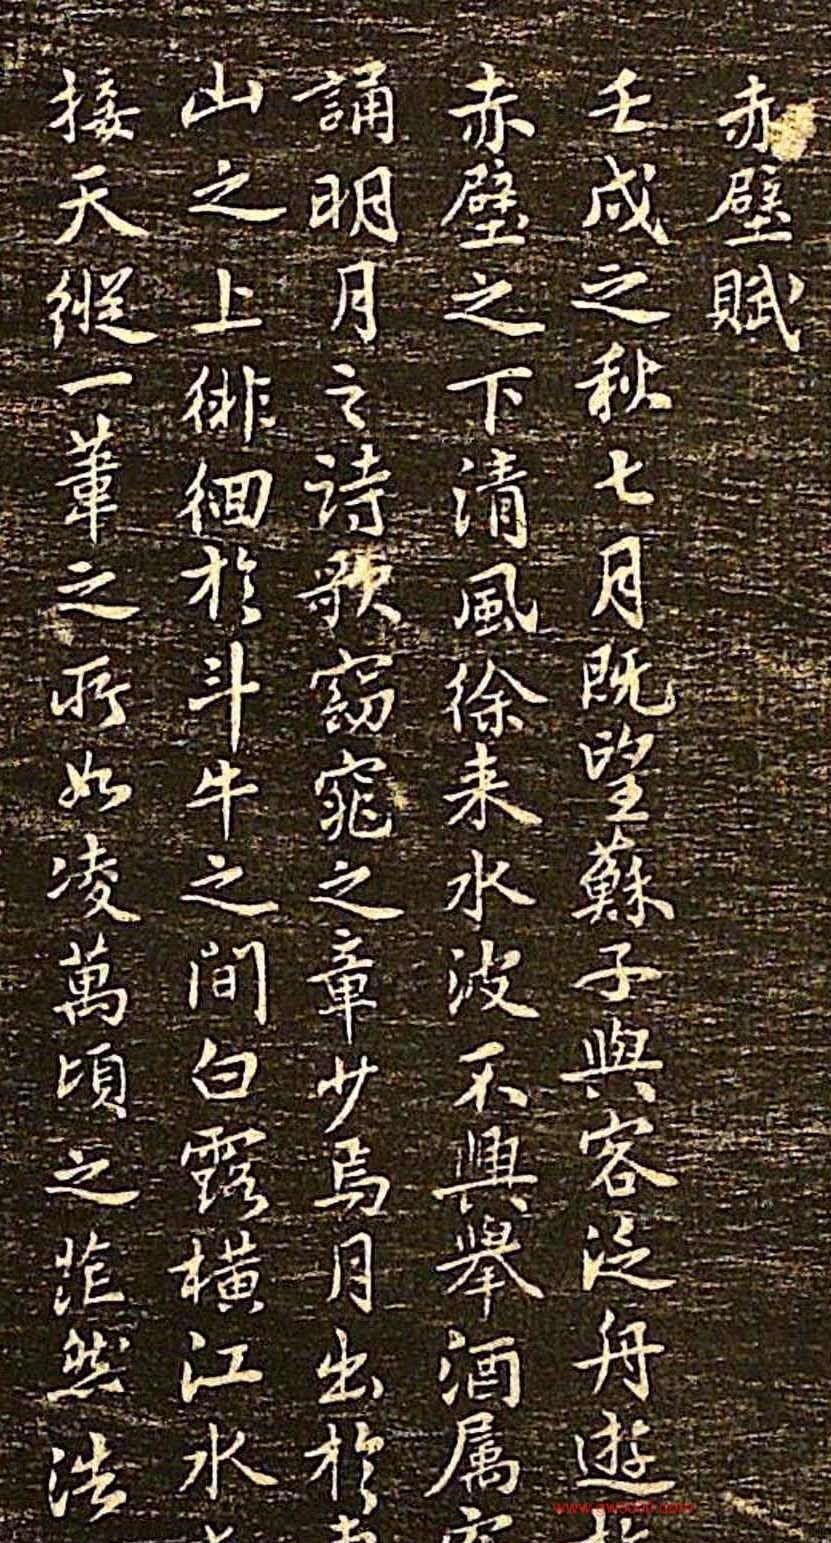 赤壁賦
壬戌之秋七月既望蘇子與客泛舟遊
赤壁之下清風徐来水波不興舉酒属
誦明月之詩歌窈窕之章少焉月出於
山之上徘徊於斗牛之間白露橫江水
接天縱一葦之所如凌萬頃之茫然浩